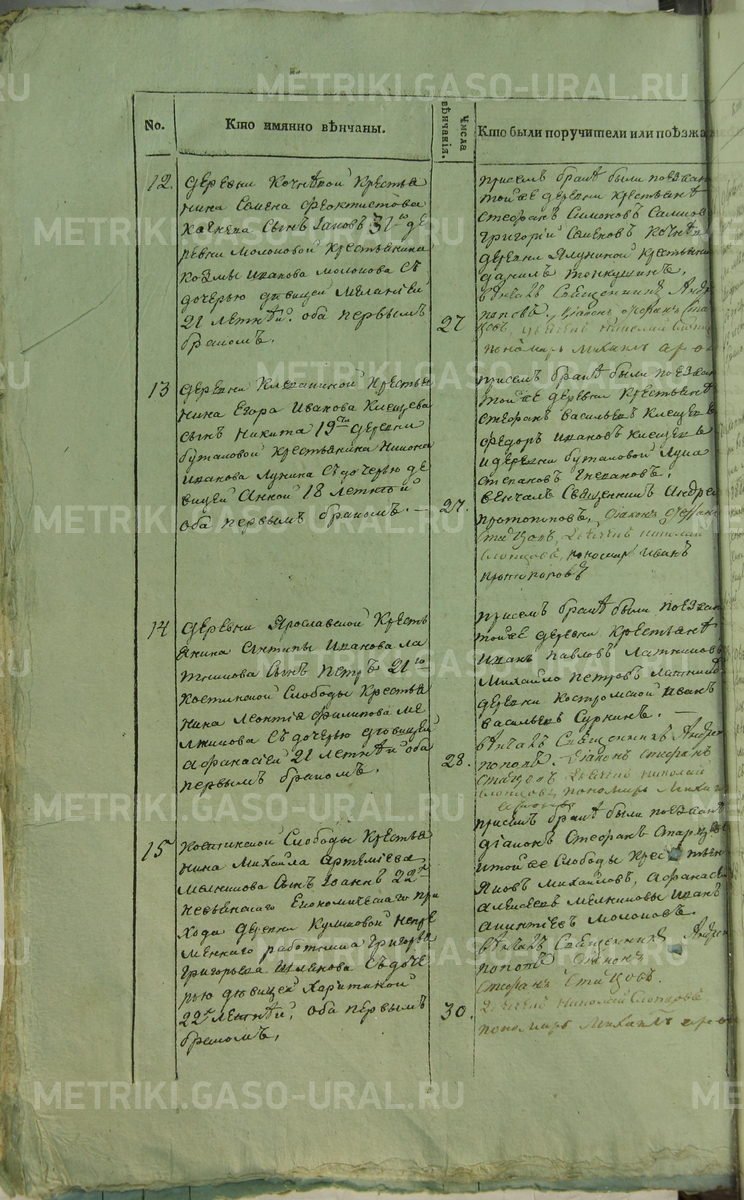 METRIKI.GASO-URAL.RU
No.
Кто имянно вѣнчаны.
Числа вѣнчанія.
Кто были поручители или поѣзжа
12.
деревни Кочнѣвой Кресть
янина Семена Феоктистова
сынъ Iаковъ 31го де
ревни Молоковой Крестьянина
Козмы Иванова Молокова съ
дочерью дѣвицей Меланіей
21 лѣтнѣй. оба первымъ
бракомъ.
27
при семъ бракѣ были поезжан
той же деревни Крестьянѣ
Стефанъ Симоновъ
Григорій Семеновъ Кочнѣв
деревни Ялуниной Крестьянин
Данилъ
вѣнчалъ Священникъ Андре
поповъ, Дiаконъ Стефанъ Ста
цовъ, Николай
пономарь Михаилъ
13
деревни Клевакиной Кресть
янина Егора Иванова Клещева
сынъ Никита 19ти деревни
Бутаковой Крестьянина Никона
Иванова Лунина съ дочерью дѣ
вицей Анной 18 лѣтнѣй
оба первымъ бракомъ. —
27.
при семъ бракѣ были поезжан
той же деревни Крестьянѣ
Стефанъ Васильевъ Клещевъ
Федоръ Ивановъ Клещевъ
и деревни Бутаковой Лука
Степановъ
Венчалъ Священникъ Андрей
протопоповъ, Дiаконъ Стефанъ
Стацовъ, Николай
пономарь Иванъ
протопоповъ
14
деревни Ярославской Кресть
янина Антипы Иванова Ла
тникова сынъ Петръ 21го
Костинской Слободы Кресть
янина Леонтія Филипова Ме
лкикова съ дочерью дѣвицей
Афанасіей 21 лѣтнѣй оба
первымъ бракомъ.
28.
при семъ бракѣ были поезжан
той же деревни Крестьянѣ
Иванъ Павловъ Латниковъ
Михайло Петровъ Латников
деревни Костромской Иванъ
Васильевъ Суркинъ. —
вѣнчалъ Священникъ Андрей
поповъ. Дiаконъ Стефанъ
Стацовъ Николай
пономарь Михаил
15
Костинской Слободы Кресть
янина Михайла Артеміева
Мелкикова сынъ Iоаннъ 22хъ
Невьянскаго Економическаго при
хода деревни Куликовой Непре
меннаго работника Григорья
Григорьева съ доче
рью дѣвицей Харитиной
22хъ лѣтнѣй, оба первымъ
бракомъ.
30.
при семъ бракѣ были поезжанѣ
дiаконъ Стефанъ
и той же Слободы Крестьянѣ
Яковъ Михайловъ, Афанасе
Алексѣевъ Мелкиковы Иванъ
Акинтіевъ Молоковъ.
вѣнчалъ Священникъ Андрей
поповъ Дiаконъ
Стефанъ Стацовъ.
Николай
пономарь Михаилъ